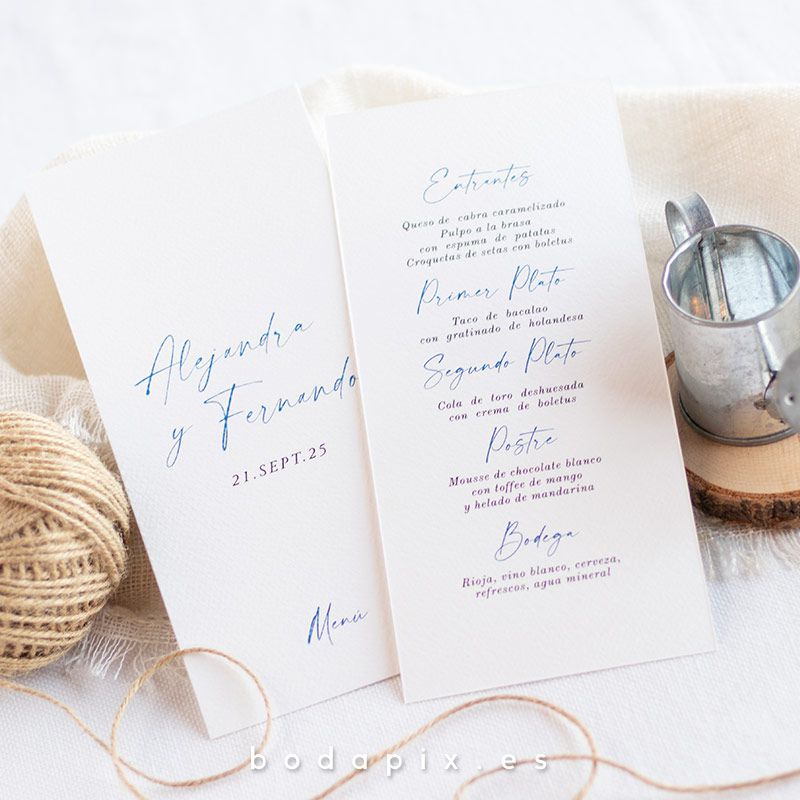 Alejandra
y Fernando
21.SEPT.25
Menú
Entrantes
Queso de cabra caramelizado
Pulpo a la brasa
con espuma de patatas
Croquetas de setas con boletus
Primer Plato
Taco de bacalao
con gratinado de holandesa
Segundo Plato
Cola de toro deshuesada
con crema de boletus
Postre
Mousse de chocolate blanco
con toffee de mango
y helado de mandarina
Bodega
Rioja, vino blanco, cerveza,
refrescos, agua mineral
bodapix.es